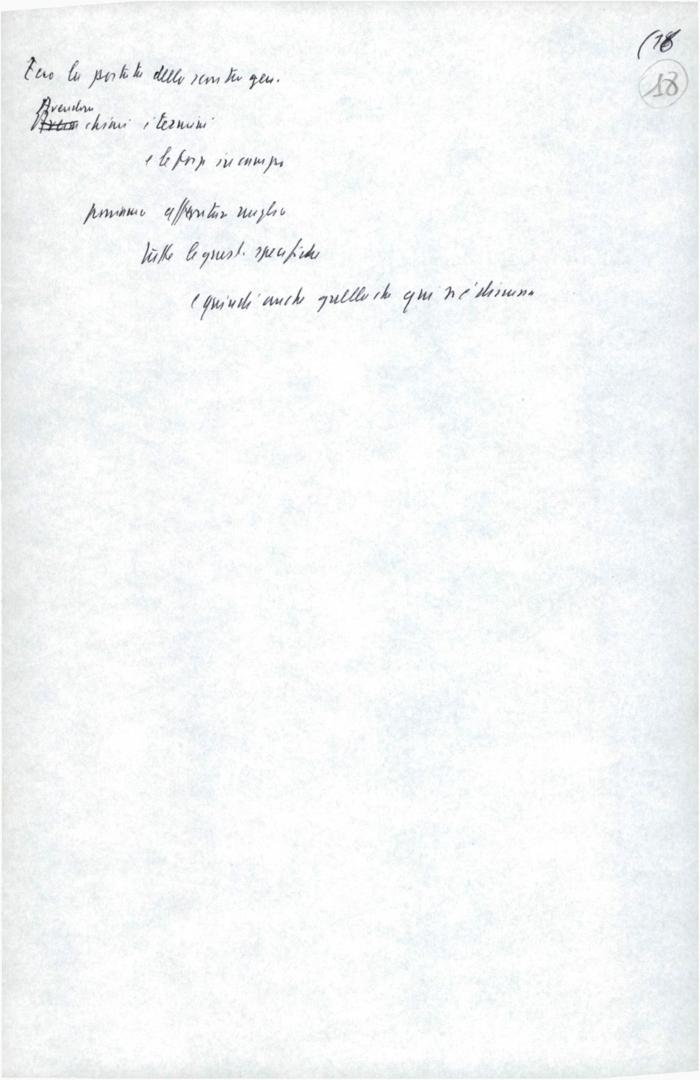 (18
18
Ecco la portata dello scontro gen.
Avendo
chiari i termini
e le forze in campo
possiamo affrontare meglio
tutte le quest. specifiche
e quindi anche quello che qui si è discusso